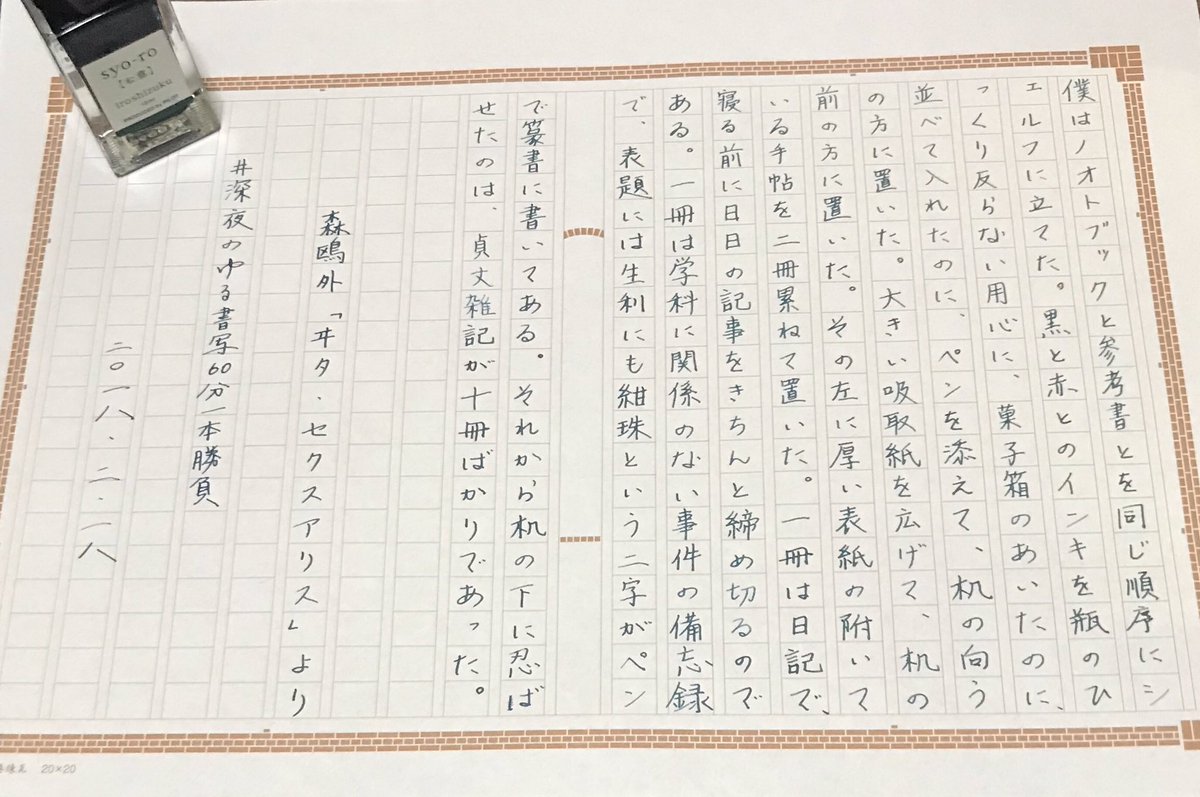 僕はノオトブックと参考書とを同じ順序にシ
エルフに立てた。黒と赤とのインキを瓶のひ
っくり反らない用心に、菓子箱のあいたのに、
並べて入れたのに、ペンを添えて、机の向う
の方に置いた。大きい吸取紙を広げて、机の
前の方に置いた。その左に厚い表紙の附いて
いる手帖を二冊累ねて置いた。一冊は日記で、
寝る前に日日の記事をきちんと締め切るので
ある。一冊は学科に関係のない事件の備忘録
で、表題には生利にも紺珠という二字がペン
で篆書に書いてある。それから机の下に忍ば
せたのは、貞丈雑記が十冊ばかりであった。
森鴎外「ヰタ・セクスアリス」より
#深夜のゆる書写60分一本勝負
二〇一八.二.一八
syo-ro
【松露】
iroshizuku
20×20